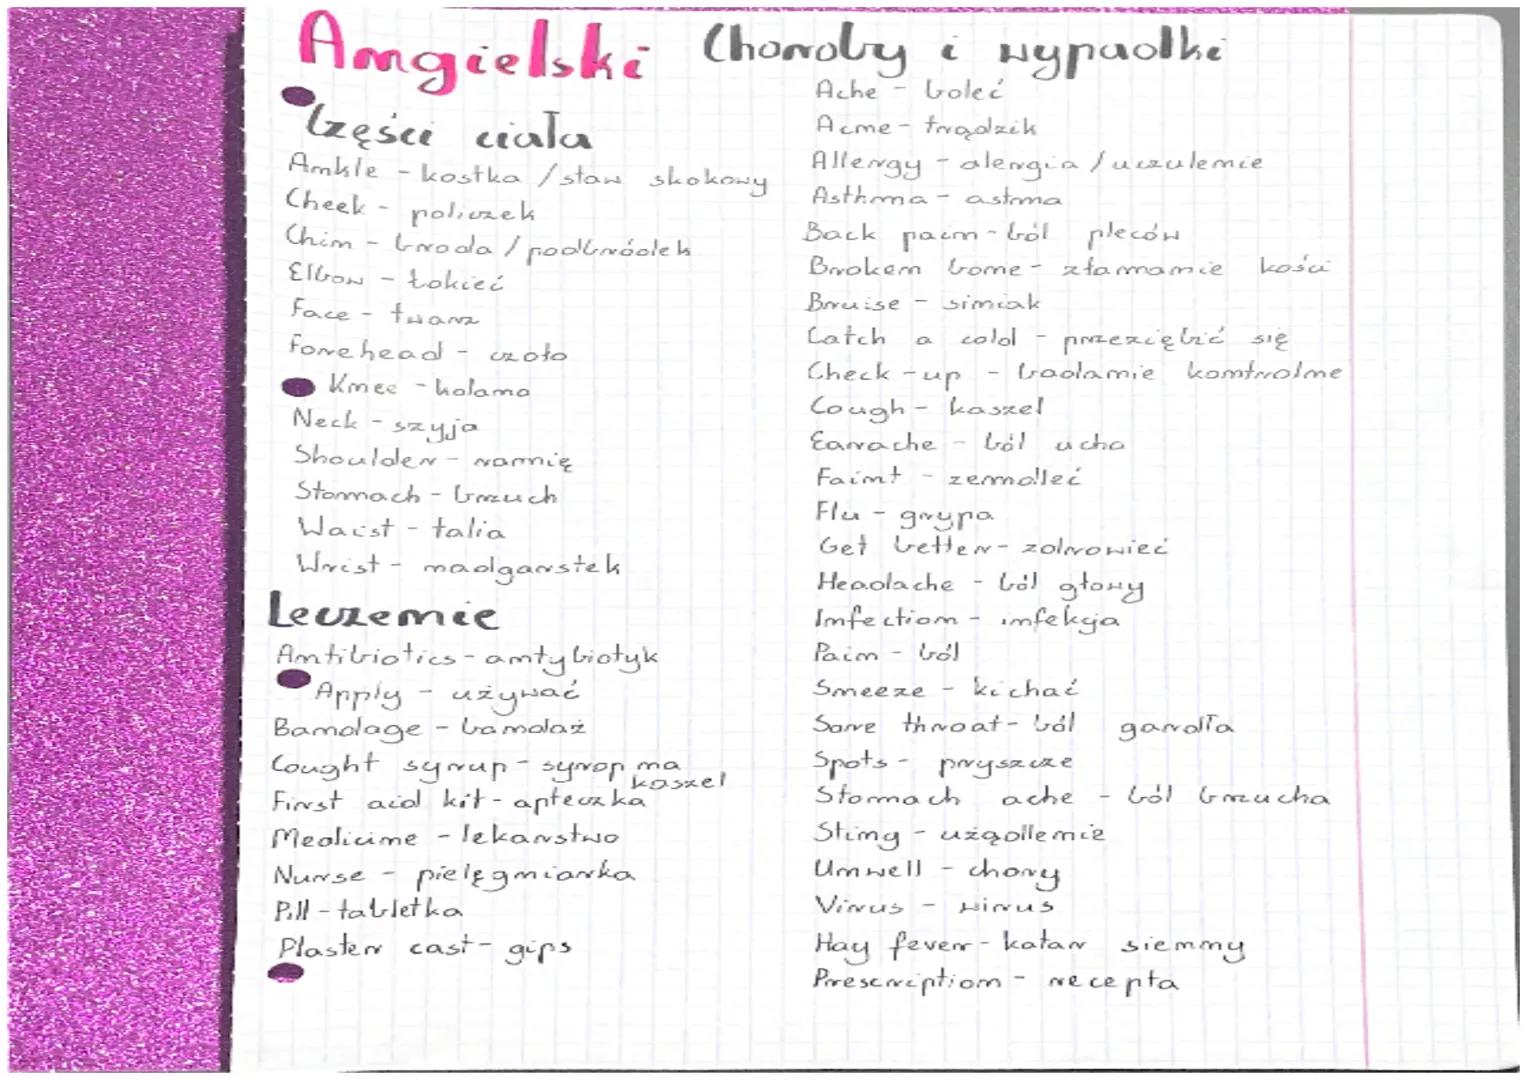 Angielski
Części ciała
Ankle - kostka / staw skokowy
Cheek - policzek
Chin - broda / podbródek
Elbow - łokieć
Face - twarz
Forehead - czoło
Knee - kolano
Neck - szyja
Shoulder - ramię
Stomach - brzuch
Waist - talia
Wrist - nadgarstek
Leczenie
Antibiotics - antybiotyk
Apply - używać
Bandage - bandaż
Cought syrup - syrop na kaszel
First aid kit - apteczka
Medicine - lekarstwo
Nurse - pielęgniarka
Pill - tabletka
Plaster cast - gips
Choroby i wypadki
Ache - boleć
Acne - trądzik
Allergy - alergia / uczulenie
Asthma - astma
Back pain - ból pleców
Broken bone - złamanie kości
Bruise - siniak
Catch a cold - przeziębić się
Check-up - badanie kontrolne
Cough - kaszel
Earache - ból ucha
Faint - zemdleć
Flu - grypa
Get better - zdrowieć
Headache - ból głowy
Infection - infekcja
Pain - ból
Sneeze - kichać
Sore throat - ból gardła
Spots - pryszcze
Stomach ache - ból brzucha
Sting - użądlenie
Unwell - chory
Virus - wirus
Hay fever - katar sienny
Prescription - recepta